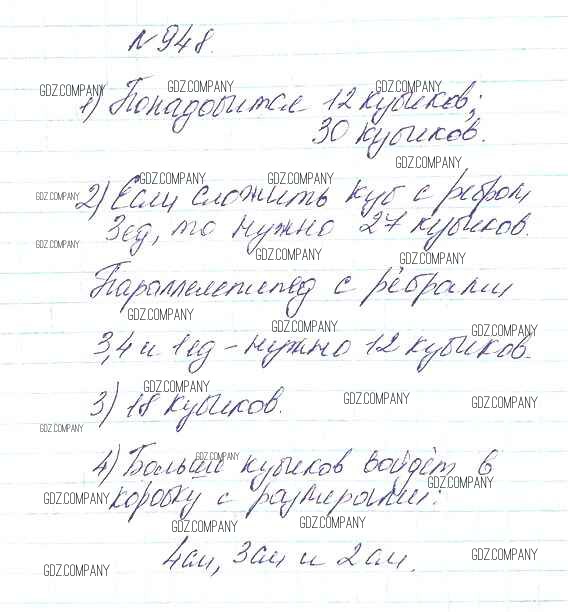 №948.
GDZ.COMPANY GDZ.COMPANY GDZ.COMPANY
1) Понадобится 12 кубиков;
30 кубиков.
GDZ.COMPANY
GDZ.COMPANY GDZ.COMPANY GDZ.COMPANY
2) Если сложить куб с ребром
3ед, то нужно 27 кубиков.
GDZ.COMPANY GDZ.COMPANY GDZ.COMPANY
Параллелепипед с рёбрами
GDZ.COMPANY GDZ.COMPANY GDZ.COMPANY
3,4 и 1ед - нужно 12 кубиков.
GDZ.COMPANY GDZ.COMPANY GDZ.COMPANY
3) 18 кубиков.
GDZ.COMPANY
GDZ.COMPANY
4) Больше кубиков войдёт в
GDZ.COMPANY GDZ.COMPANY
коробку с размерами:
GDZ.COMPANY GDZ.COMPANY
4см, 3см и 2см.
GDZ.COMPANY GDZ.COMPANY